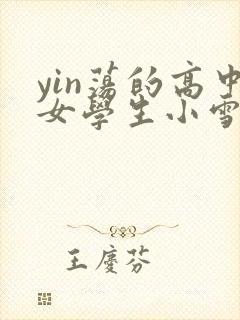 yin蕩的高中
女學生小雪
王慶芬